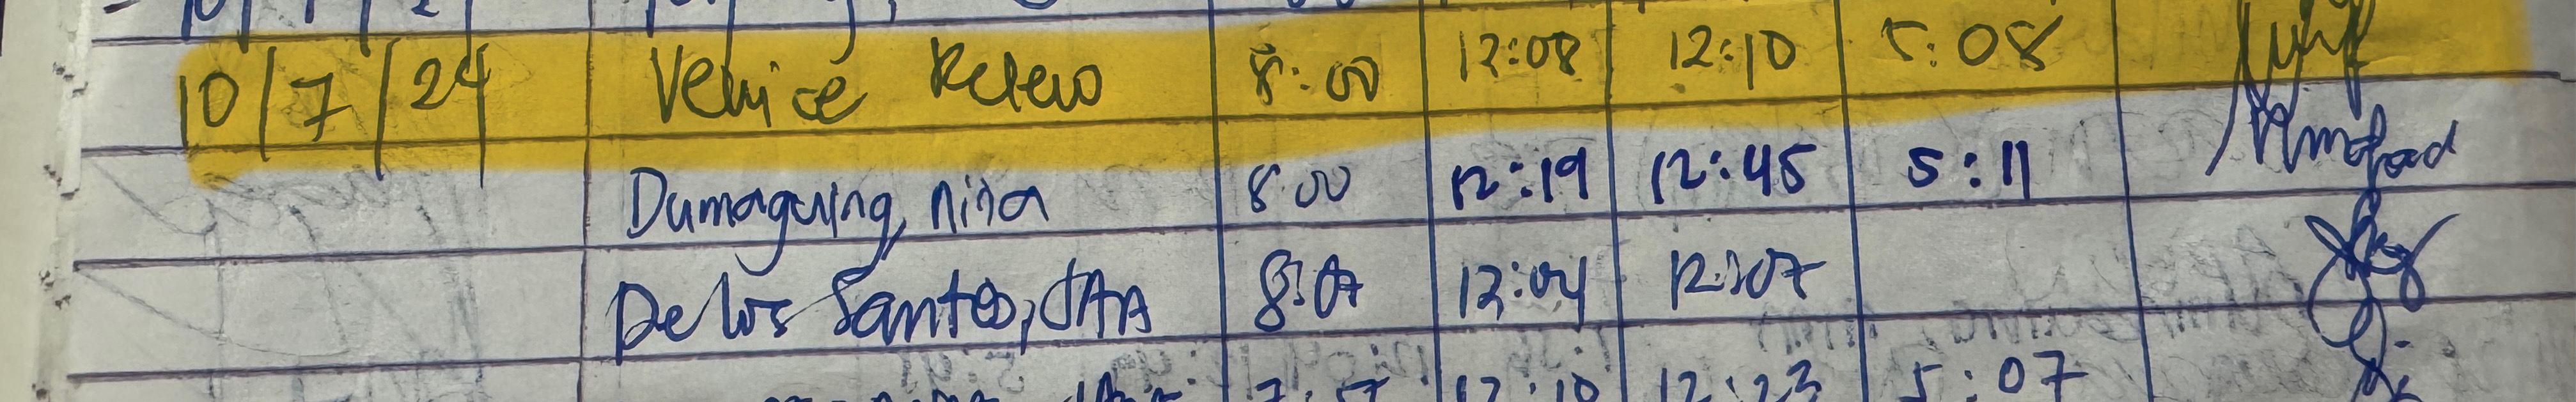 10/7/24 Venice 8:00 12:08 12:10 5:08
Dumaguing, nina 8:00 12:19 12:45 5:11
De los Santos, JAA 8:07 12:04 12:07
12:10 12:23 5:07